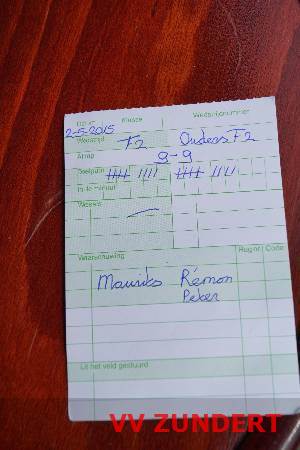 Datum Klasse Wedstrijdnummer
2-5-2015
Wedstrijd F2 Ouders F2
Aftrap 9-9
Doelpunt
In de minuut
Wissels
Waarschuwing Rugnr. Code
Maurits Rémon
Peter
Uit het veld gestuurd
VV ZUNDERT